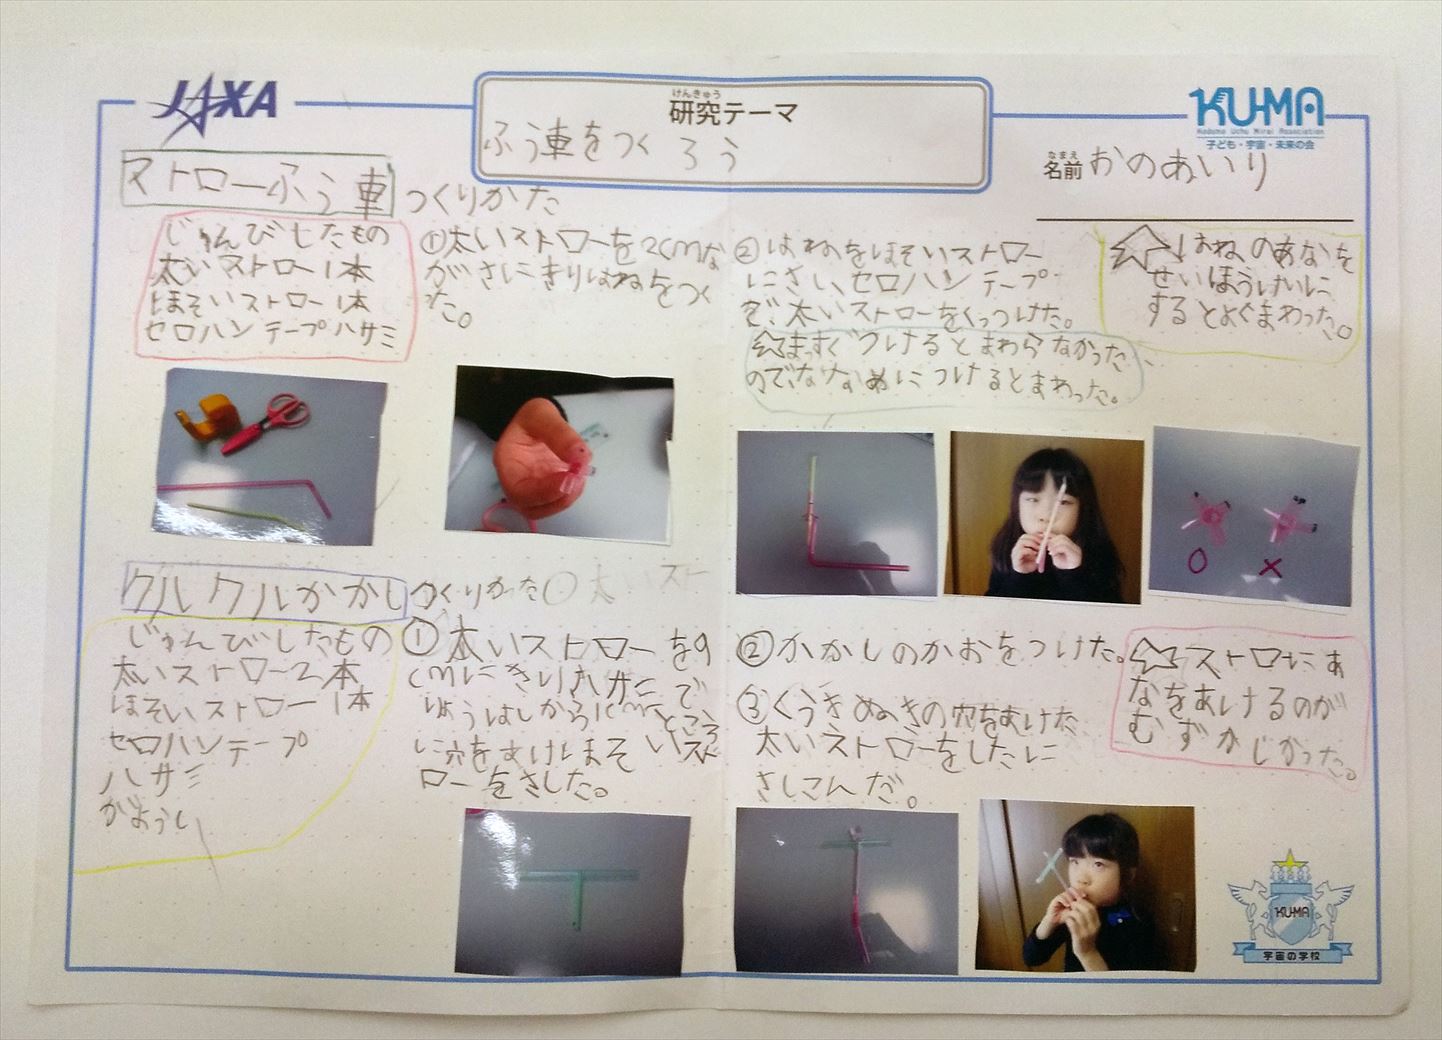 JAXA
けんきゅう
研究テーマ
ふう車をつくろう
KU-MA
Kodomo Uchu Mirai Association
子ども・宇宙・未来の会
なまえ
名前 かのあいり
ストローふう車 つくりかた
じゅんびしたもの
太いストロー1本
ほそいストロー1本
セロハンテープハサミ
①太いストローを2cmな
がさにきりはねをつく
た。
②はねをほそいストロー
にさし、セロハンテープ
で、太いストローをくっつけた。
☆まっすぐつけるとまわらなかった
のでななめにつけるとまわった。
☆はねのあなを
せいほうけいに
するとよくまわった。
○ ×
クルクルかかし つくりかた
じゅんびしたもの
太いストロー2本
ほそいストロー1本
セロハンテープ
ハサミ
がようし
①太いストローを9
cmにきりハサミで
りょうはしから1cmところ
に穴をあけほそいスト
ローをさした。
②かかしのかおをつけた。
③くうきぬきの穴をあけた
太いストローをしたに
さしこんだ。
☆ストローにあ
なをあけるのが
むずかしかった。
KU-MA
宇宙の学校